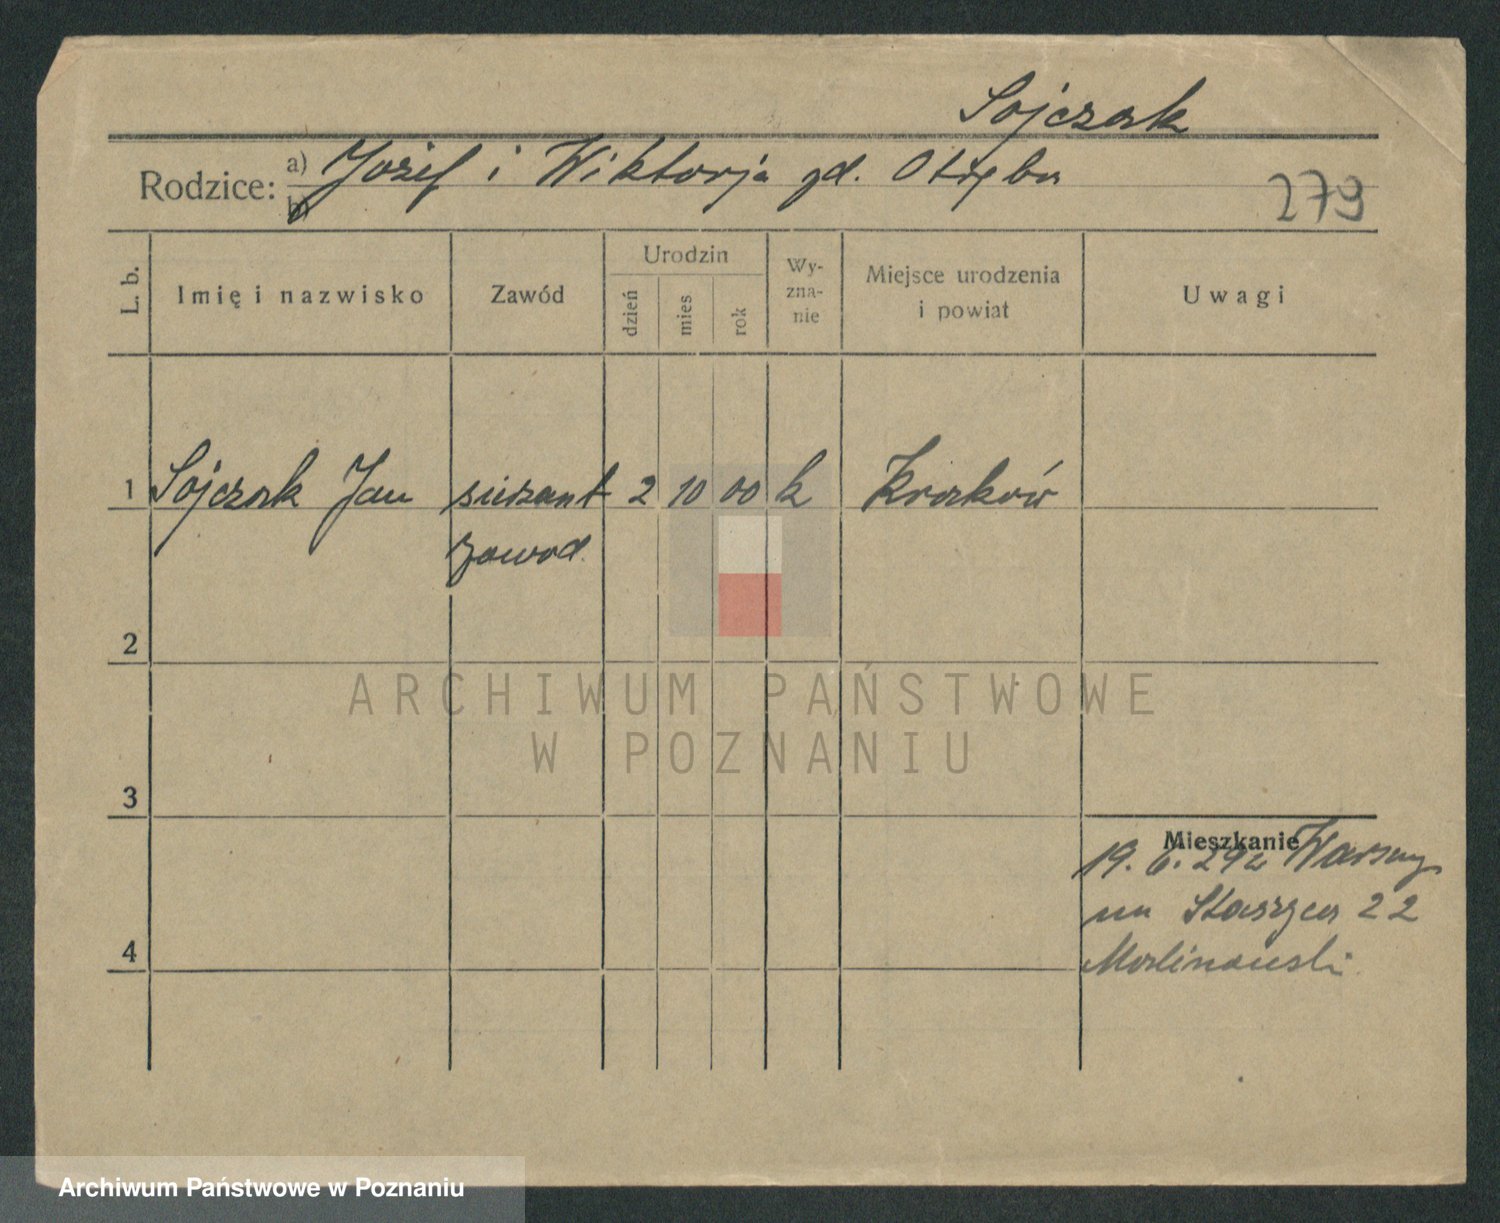 Sojczak
Rodzice: a) Józef i Wiktorja zd. Otręba
b)
279
L. b. Imię i nazwisko Zawód Urodzin dzień mies rok Wy-zna-nie Miejsce urodzenia i powiat Uwagi
1 Sojczak Jan sierżant 2 10 00 k Kraków
zawod.
2
ARCHIWUM PAŃSTWOWE
W POZNANIU
3
Mieszkanie
19. 6. 29 z Warszawy
na Staszyca 22
Malinowski
4
Archiwum Państwowe w Poznaniu